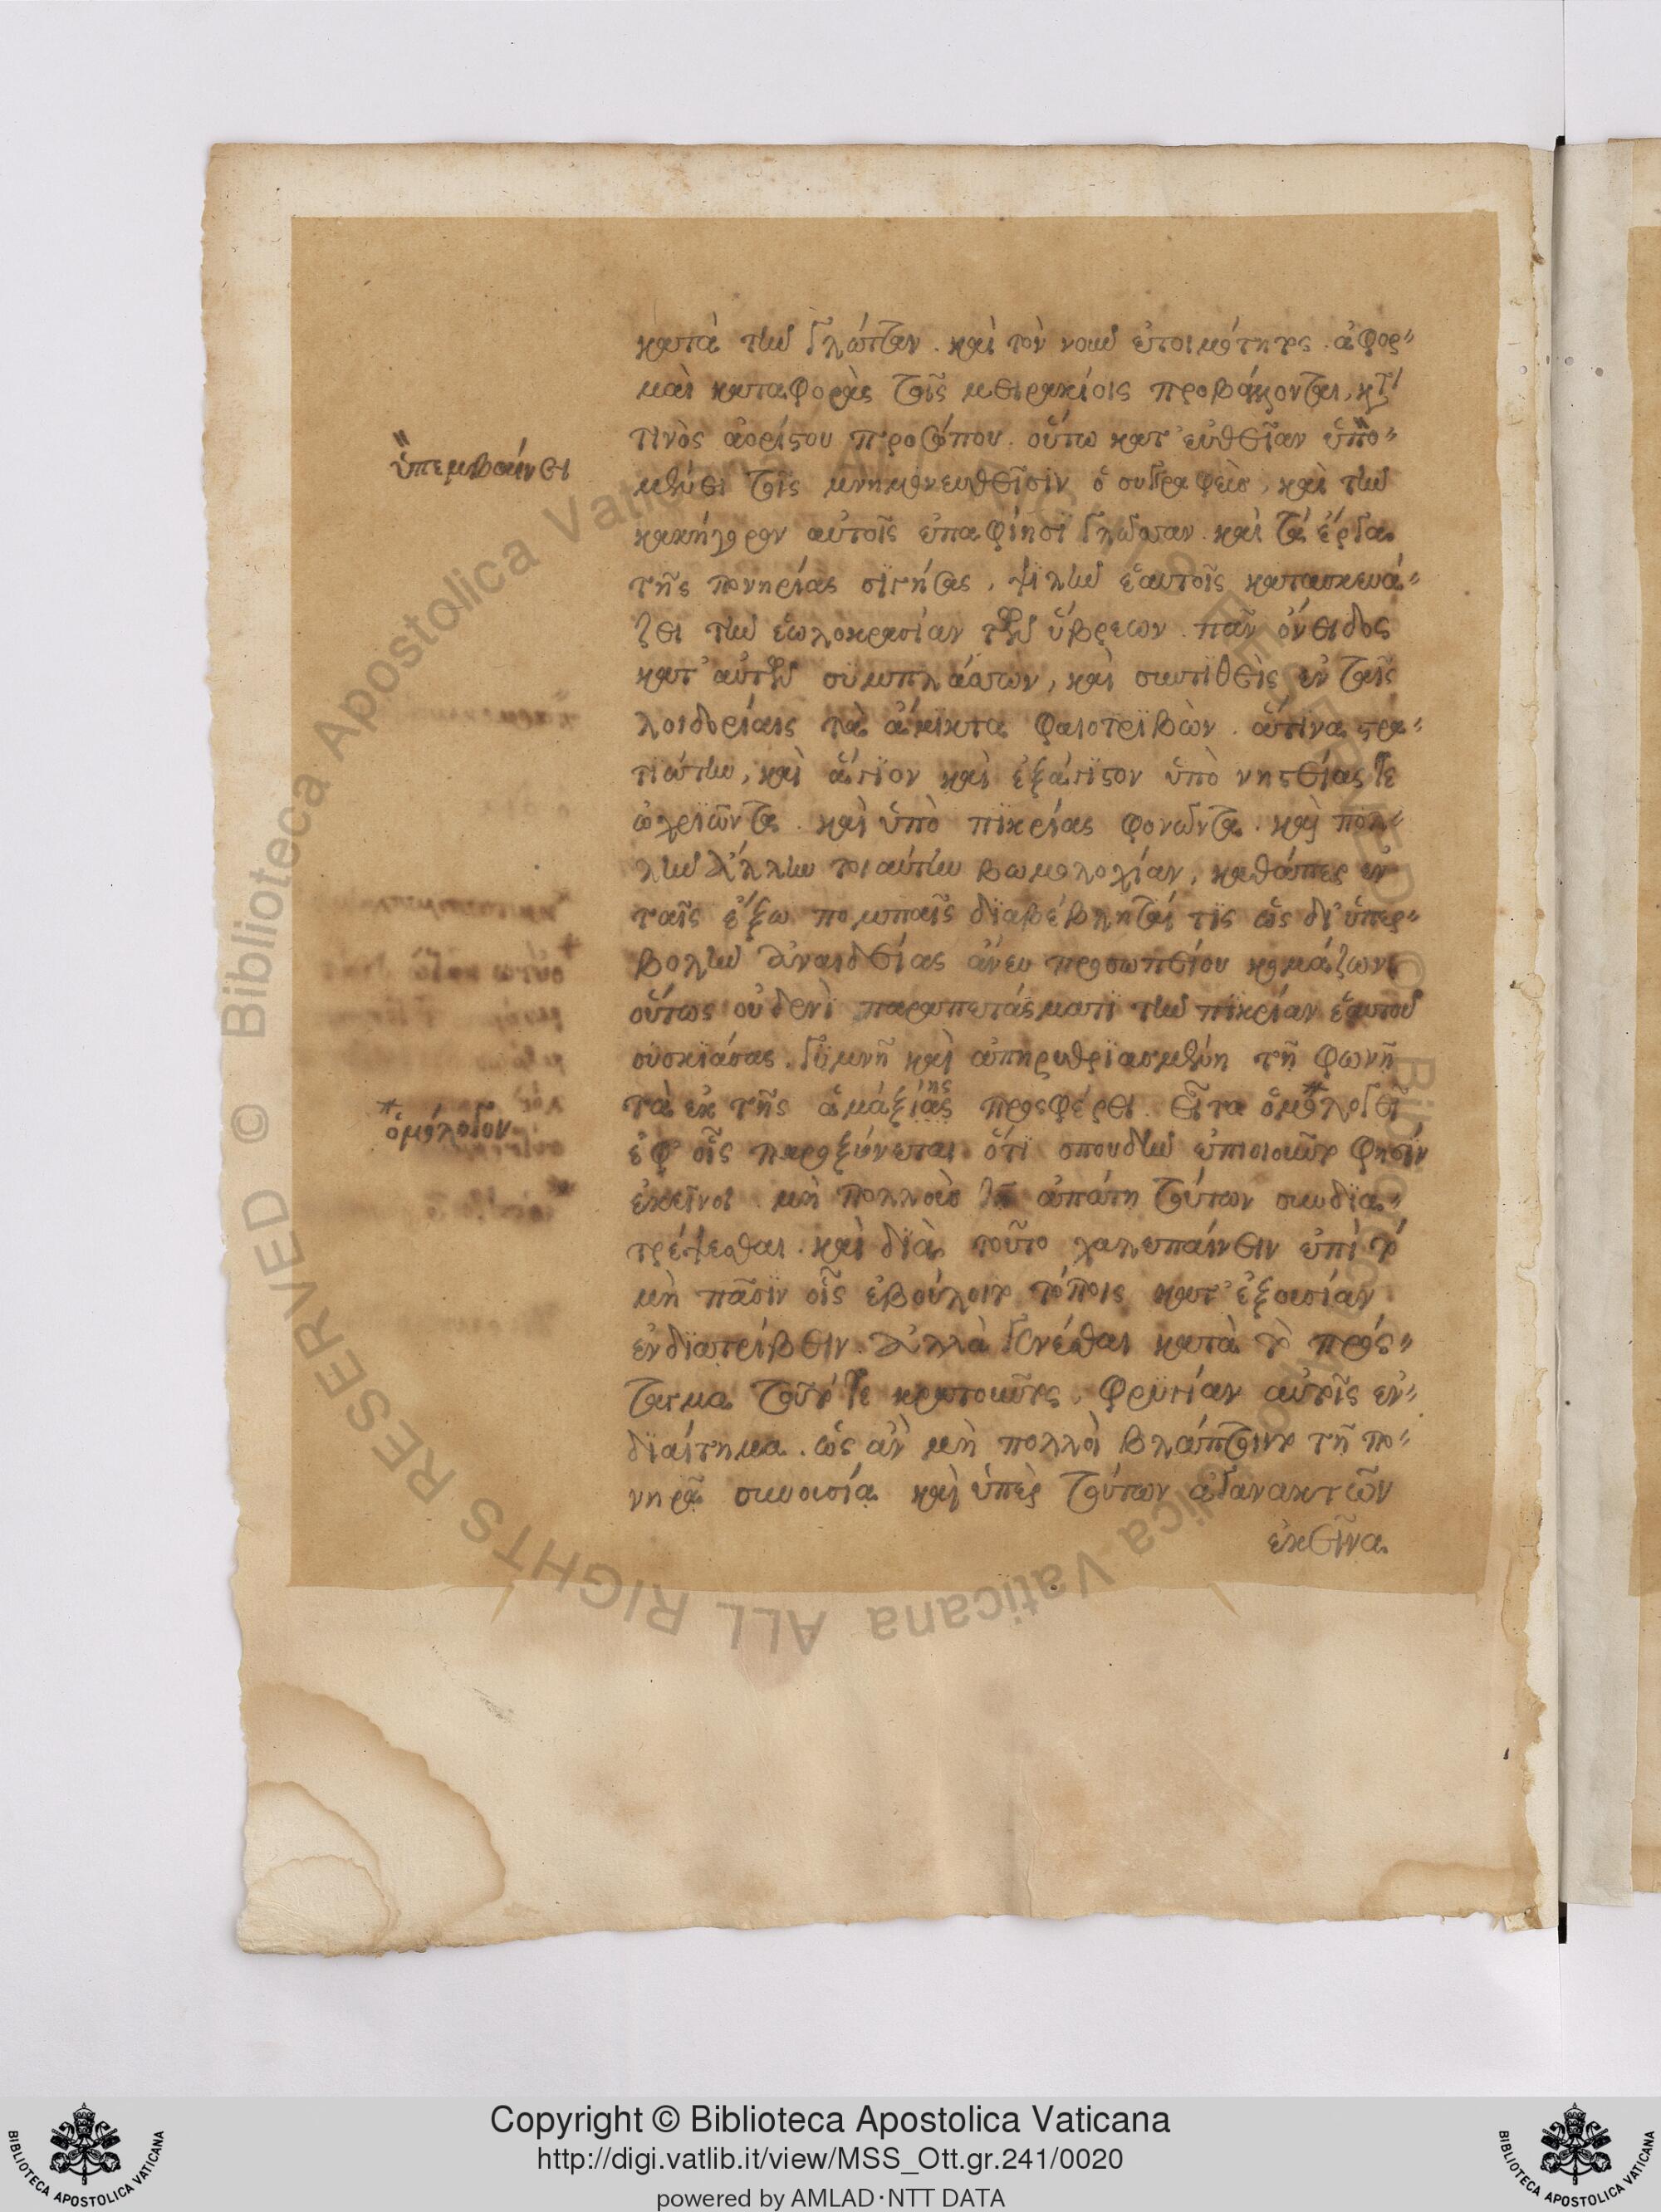 κατὰ τὴν γλῶτταν. καὶ τὸν νοῦν ἑτοιμότητος. ἀφορ-
μὰς καταφορᾶς τοῖς μειρακίοις προβάλλονται, κτ'
τινὸς ἀορίστου προσώπου. οὕτω κατ' εὐθεῖαν ὑπο-
ὑπεμβαίνει
μένει τοῖς μνημονευθεῖσιν ὁ συγγραφεὺς, καὶ τὴν
κακήγορον αὐτοῖς ἐπαφίησι γλῶσσαν. καὶ τὰ ἔργα
τῆς πονηρίας σιγήσας, ψιλὴν ἑαυτοῖς κατασκευά-
ζει τὴν ἑωλοκρασίαν τῶν ὕβρεων. πᾶν ὄνειδος
κατ' αὐτῶν συμπλάσσων, καὶ συντιθεὶς ἐν ταῖς
λοιδορίαις τὰ φαιοτριβὼν. ἅτινα στρα-
τιώτην, καὶ ἄσιτον καὶ ἐξάγιστον ὑπὸ νηστείας γε
ὠχριῶντα. καὶ ὑπὸ πικρίας φονῶντα. καὶ πολ-
λὴν ἄλλην τοιαύτην βωμολοχίαν, καθάπερ ἐν
ταῖς ἔξω πομπαῖς διαβέβληταί τις ὡς δι' ὑπερ-
βολὴν ἀναιδείας ἄνευ προσωπείου κωμάζων
οὕτως οὐδενὶ παραπετάσματι τὴν πικρίαν ἑαυτοῦ
συσκιάσας. γυμνῇ καὶ ἀπηρυθριασμένῃ τῇ φωνῇ
τὰ ἐκ τῆς ἁμάξίας ης προσφέρει. εἶτα ὁμολογεῖ
ὁμόλογον
ἐφ' οἷς παροξύνεται ὅτι σπουδὴν ἐποιοῦντο φησὶν
ἐκεῖνοι μὴ πολλοὺς ἀπάτῃ τούτων συνδια-
τρέψεσθαι. καὶ διὰ τοῦτο χαλεπαίνειν ἐπὶ τῷ
μὴ πᾶσιν οἷς ἐβούλοντο τόποις κατ' ἐξουσίαν
ἐνδιατρίβειν. ἀλλὰ γενέσθαι κατὰ τὸ πρόσ-
ταγμα τοῦ τότε κρατοῦντος. φρυγίαν αὐτοῖς ἐν-
διαίτημα. ὡς ἂν μὴ πολλοὶ βλάπτοιντο τῇ πο-
νηρᾷ συνουσίᾳ καὶ ὑπὲρ τούτων ἀγανακτῶν
ἐκεῖνα
Copyright © Biblioteca Apostolica Vaticana
http://digi.vatlib.it/view/MSS_Ott.gr.241/0020
powered by AMLAD·NTT DATA